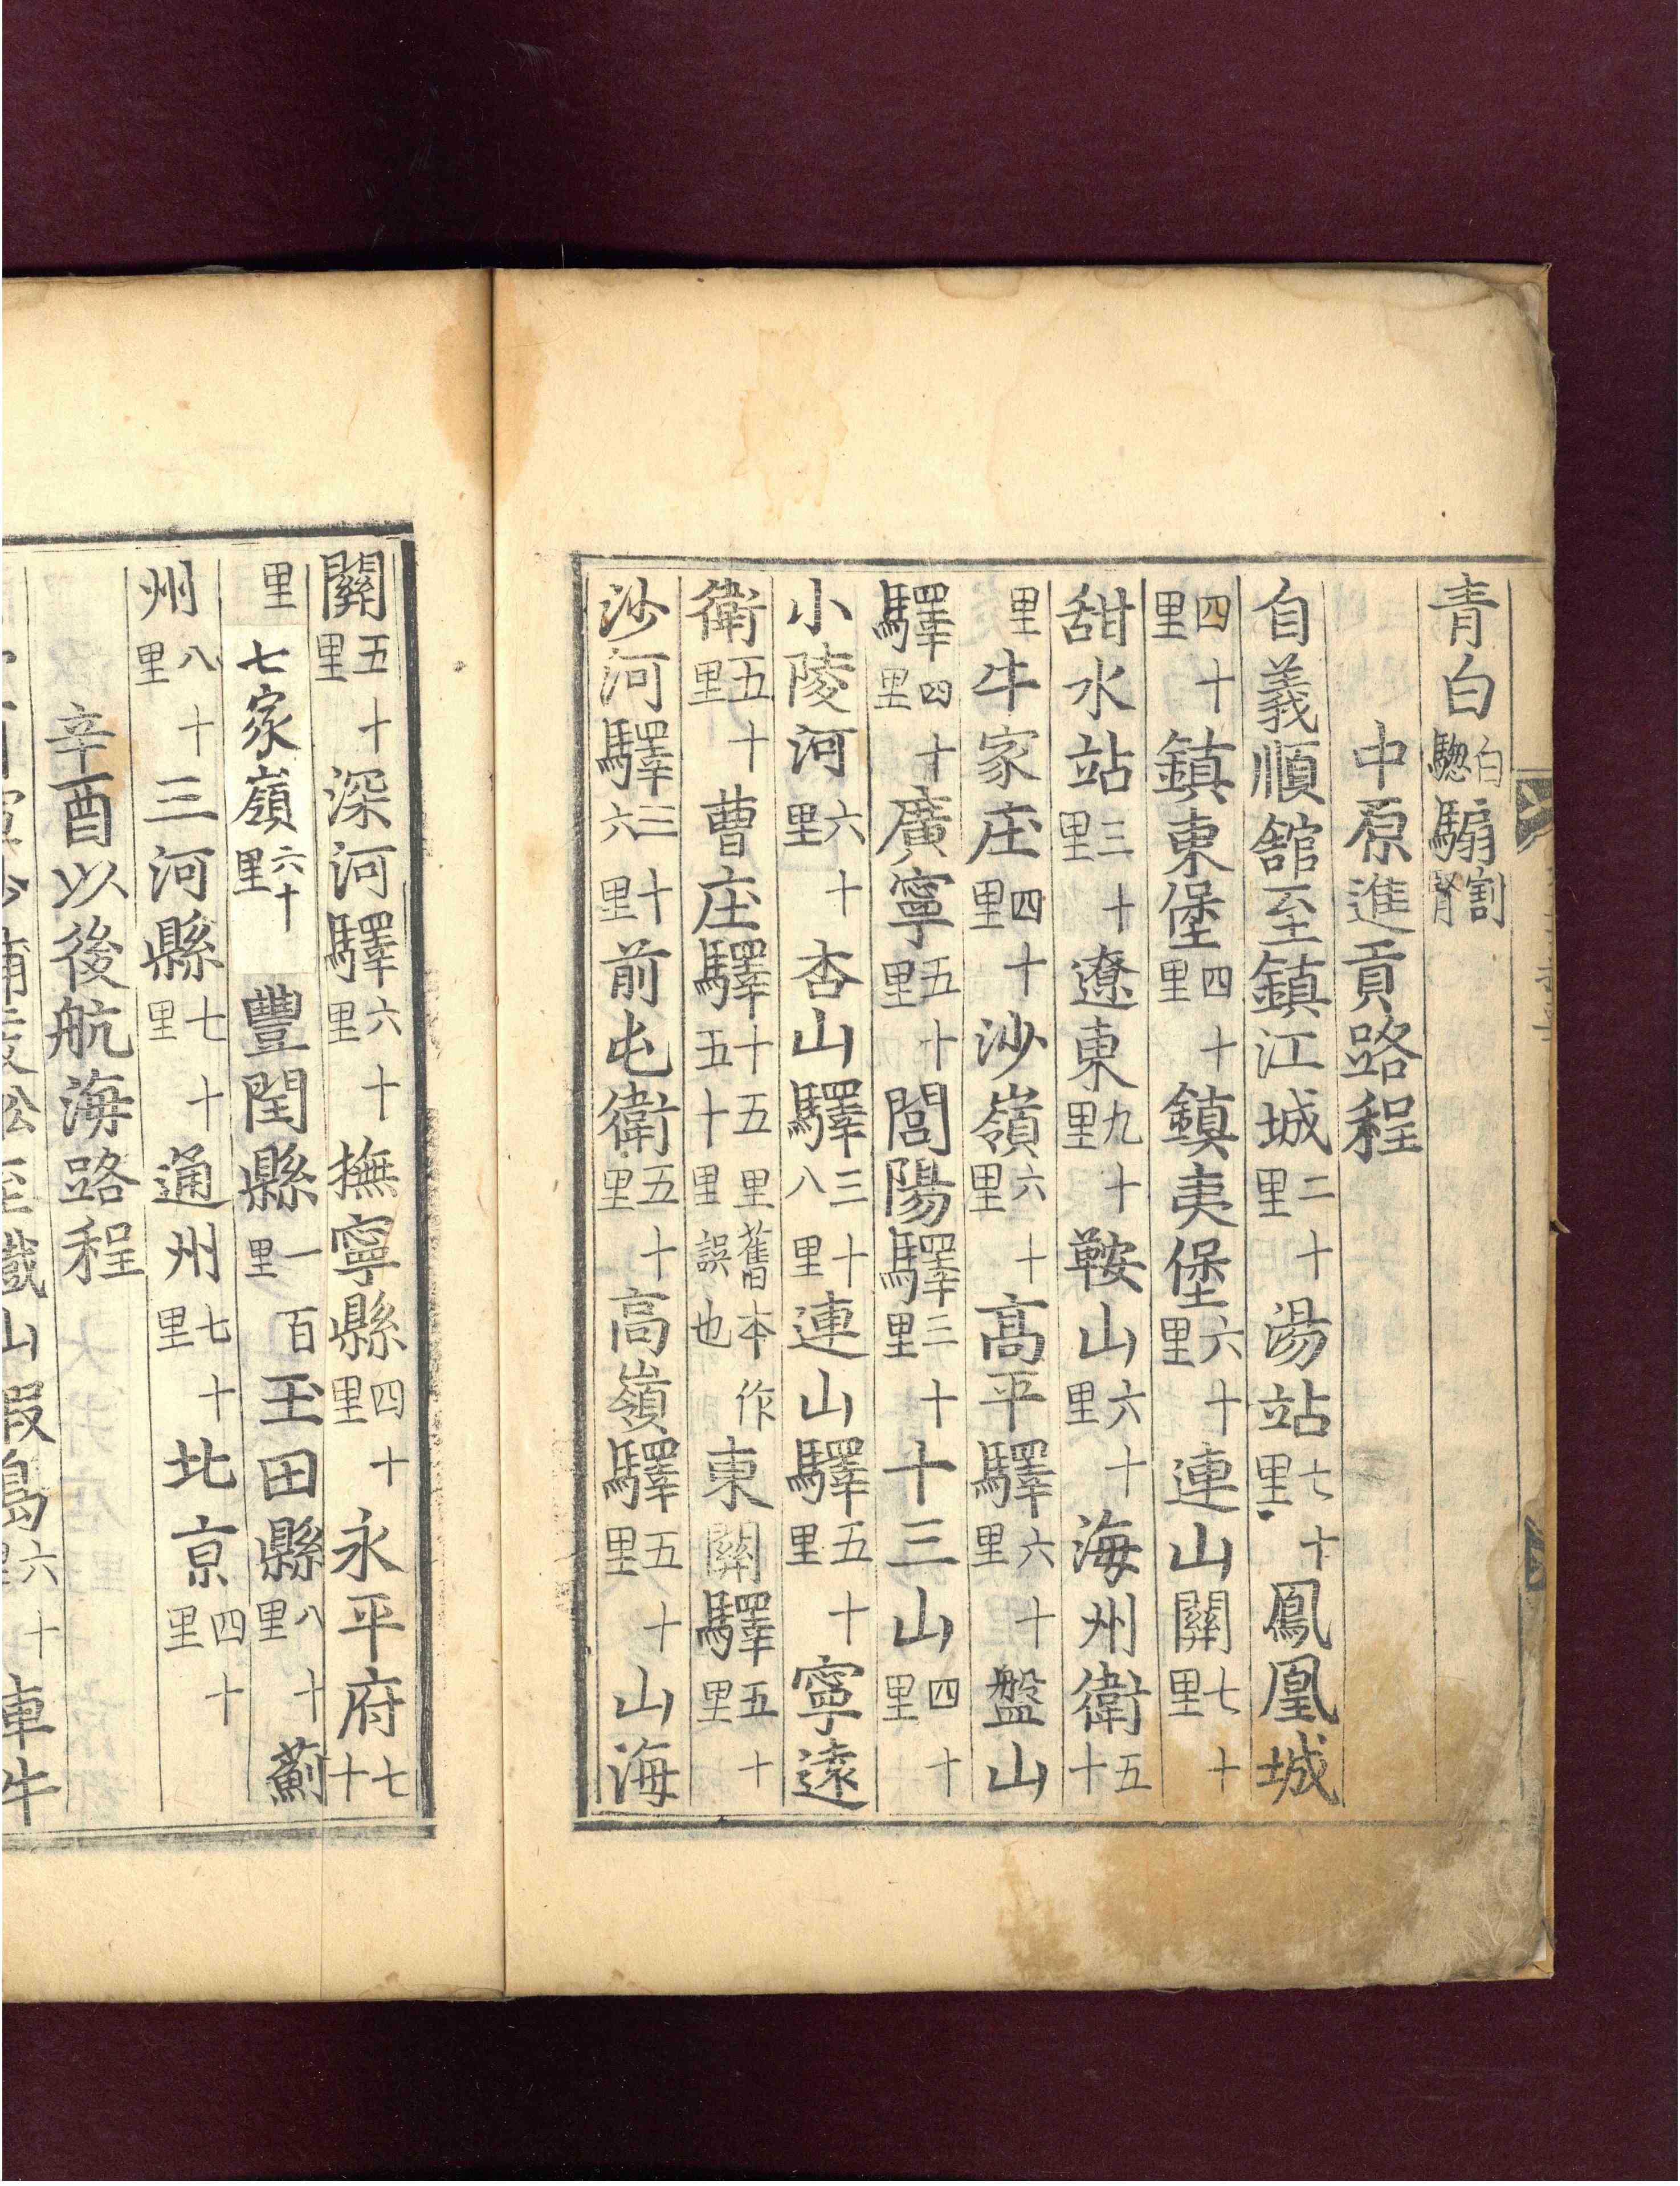 青白白驄騸割腎
中原進貢路程
自義順舘至鎮江城二十里湯站七十里鳳凰城
四十里鎮東堡四十里鎮夷堡六十里連山關七十里
甜水站三十里遼東九十里鞍山六十里海州衛五十
里牛家庄四十里沙嶺六十里高平驛六十里盤山
驛四十里廣寧五十里閭陽驛三十里十三山四十里
小陵河六十里杏山驛三十八里連山驛五十里寧遠
衛五十里曹庄驛十五里舊本作五十里誤也東關驛五十里
沙河驛三十六里前屯衛五十里高嶺驛五十里山海
關五十里深河驛六十里撫寧縣四十里永平府七十
里七家嶺六十里豐閏縣一百里玉田縣八十里薊
州八十里三河縣七十里通州七十里北京四十里
辛酉以後航海路程
山椵島六十里車牛